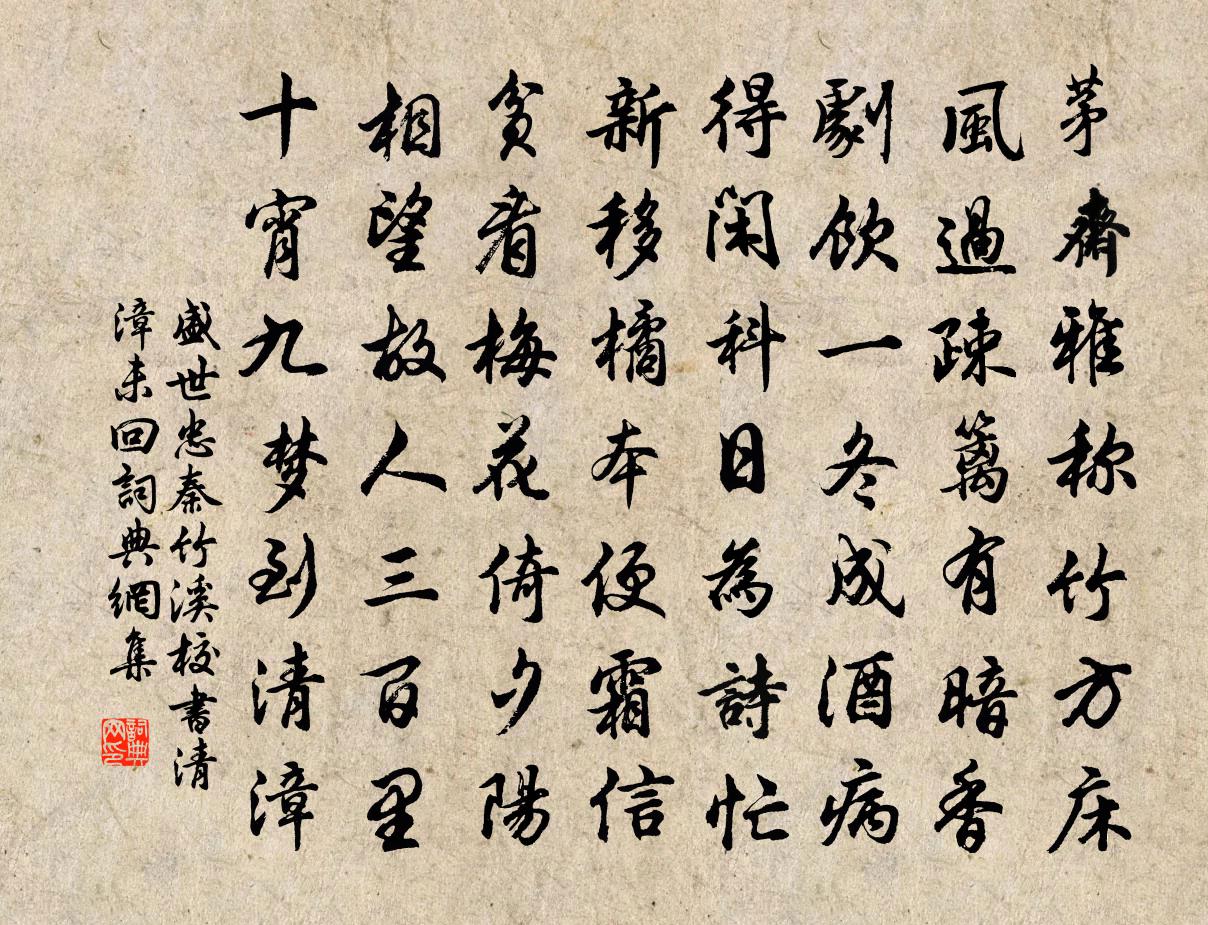 茅齋雅称竹方床
風過疎篱有暗香
劇飲一冬成酒病
得閑科日為詩忙
新移橘本便霜信
貪看梅花倚夕陽
相望故人三百里
十宵九梦到清漳
盛世忠秦竹溪校書清
漳未回詞典網集
詞典
网印